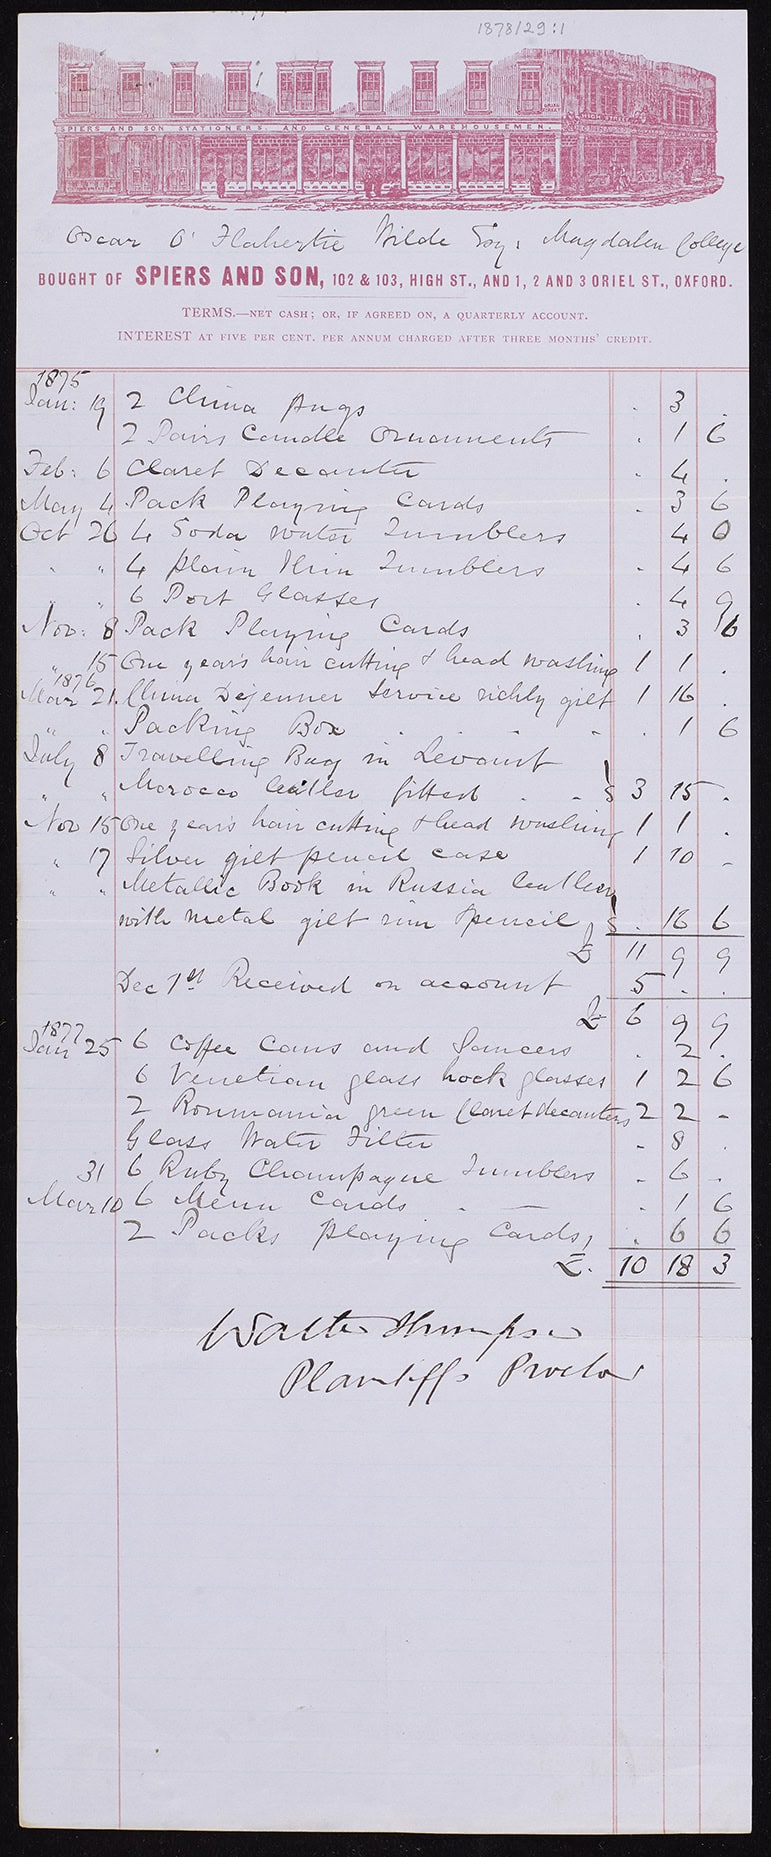 1878/29:1
SPIERS AND SON STATIONERS. AND GENERAL WAREHOUSEMEN.
ORIEL STREET
HIGH STREET
Oscar O'Flahertie Wilde Esq, Magdalen College
BOUGHT OF SPIERS AND SON, 102 & 103, HIGH ST., AND 1, 2 AND 3 ORIEL ST., OXFORD.
TERMS.—NET CASH; OR, IF AGREED ON, A QUARTERLY ACCOUNT.
INTEREST AT FIVE PER CENT. PER ANNUM CHARGED AFTER THREE MONTHS' CREDIT.
1875
Jan: 19 2 China Mugs . 3 .
2 Pairs Candle Ornaments . 1 6
Feb: 6 Claret Decanter . 4 .
May 4 Pack Playing Cards . 3 6
Oct 26 4 Soda Water Tumblers 4 0
" " 4 plain thin Tumblers . 4 6
" " 6 Port Glasses . 4 9
Nov: 8 Pack Playing Cards . 3 6
" 15 One year's hair cutting & head washing 1 1 .
1876
Mar 21. China Dejeuner Service richly gilt 1 16 .
" " Packing Box . . . . 1 6
July 8 Travelling Bag in Levant
" " Morocco leather fitted . . 3 15 .
Nov 15 One year's hair cutting & head washing 1 1 .
" 17 Silver gilt pencil case 1 10 -
" " Metallic Book in Russia leather
with metal gilt rim & pencil . 16 6
£ 11 9 9
Dec 1st Received on account 5 . .
£ 6 9 9
1877
Jan 25 6 Coffee Cans and Saucers . 2 .
6 Venetian glass hock glasses 1 2 6
2 Roumania green Claret decanters 2 2 -
Glass Water Filter - 8 .
31 6 Ruby Champagne Tumblers . 6 .
Mar 10 6 Menu Cards . — . 1 6
2 Packs playing Cards, . 6 6
£. 10 18 3
Walter Thompson
Plaintiffs Proctor